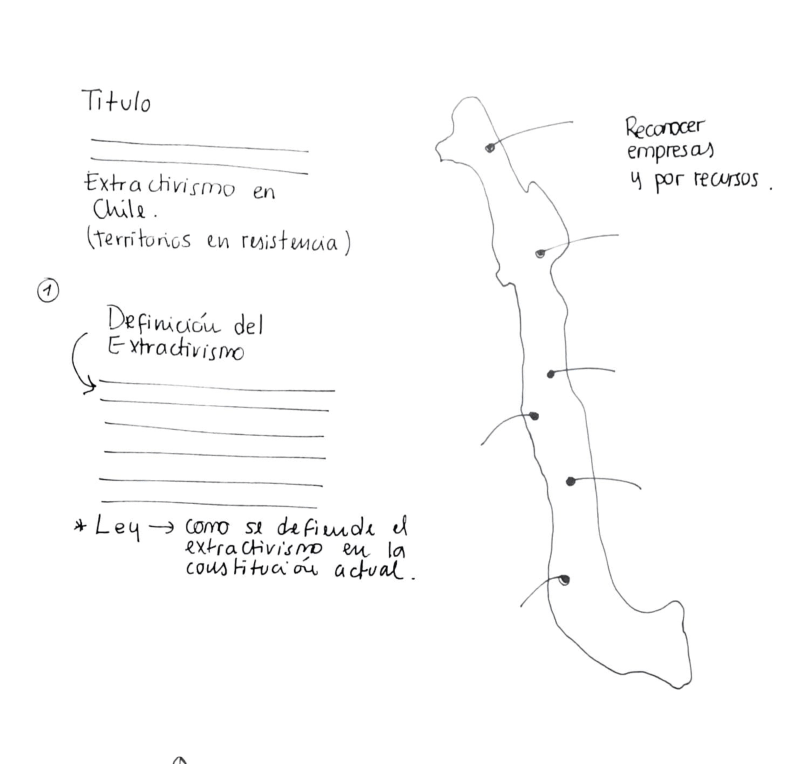 Titulo
Extractivismo en
Chile.
(territorios en resistencia)
1
Definición del
Extractivismo
* Ley → como se defiende el
extractivismo en la
constitución actual.
Reconocer
empresas
y por recursos.